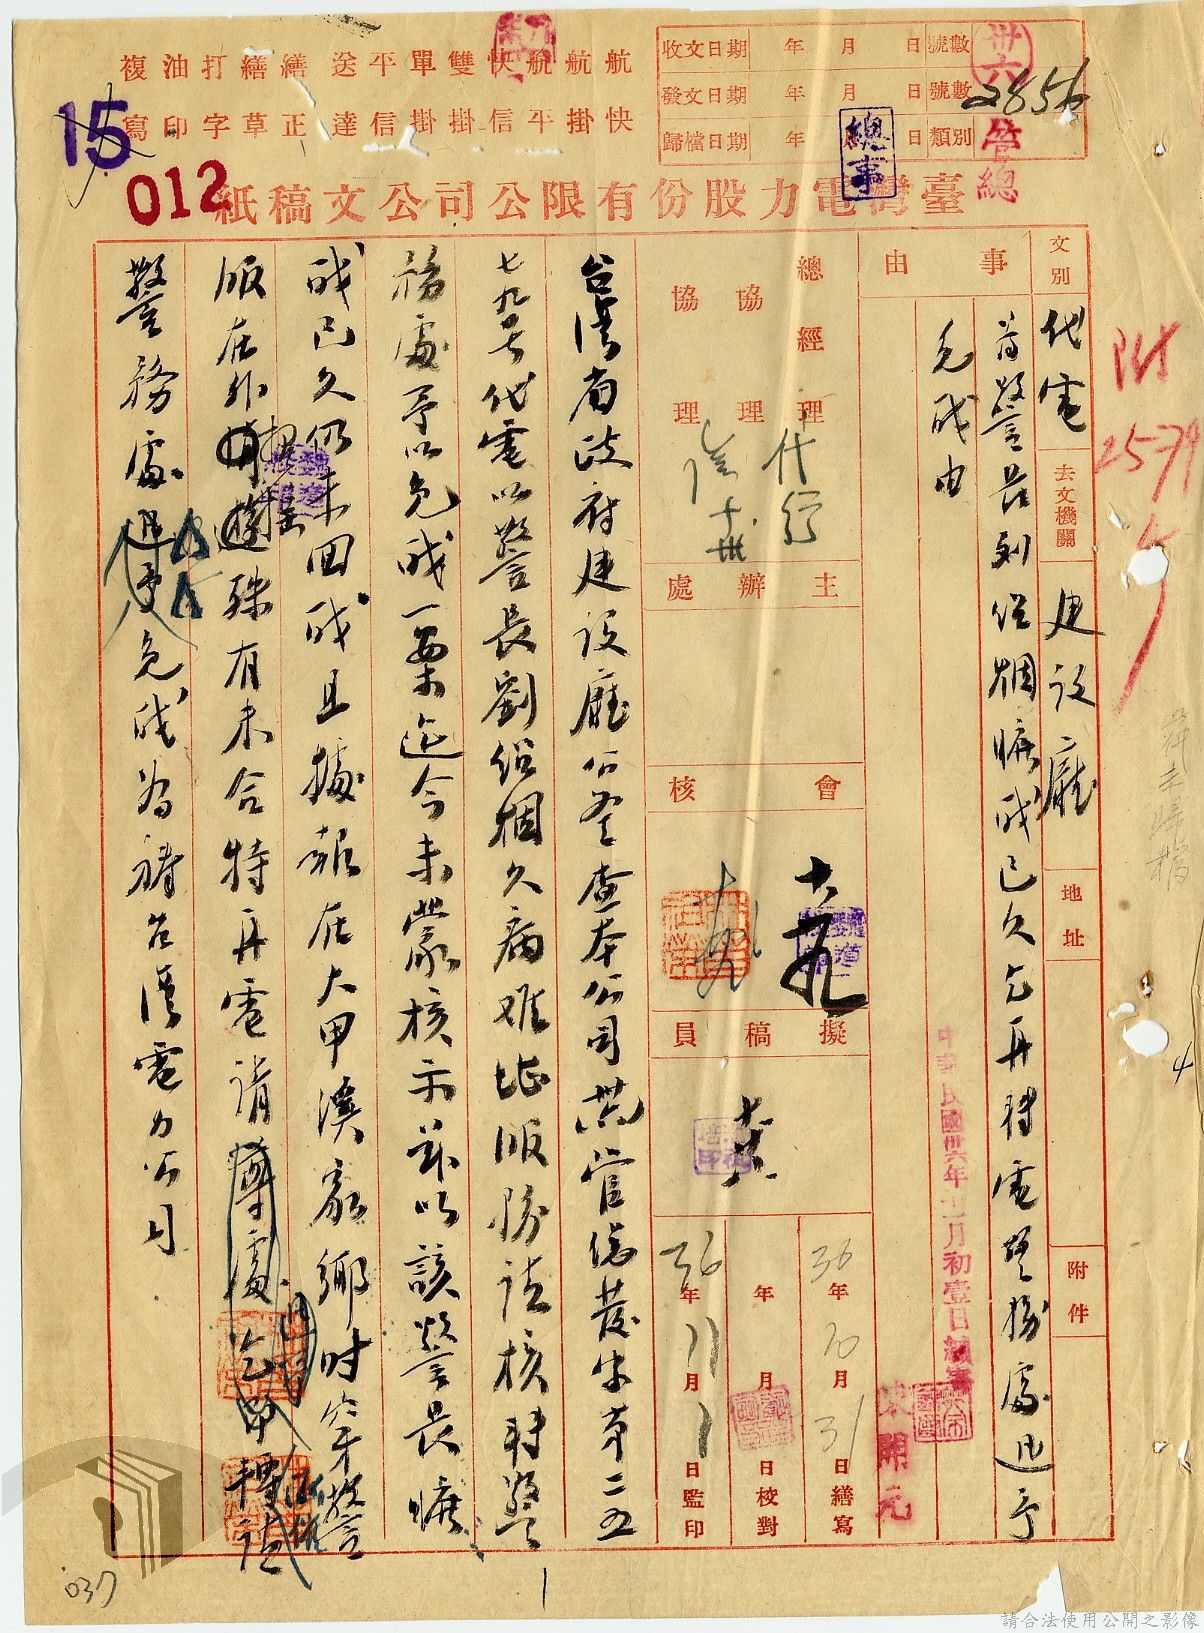 航航航快雙單平送繕繕打油複
快掛平信掛掛信達正草字印寫
收文日期 年 月 日 號數
發文日期 年 月 日 號數
歸檔日期 年 月 日 類別
卅六
2856
管總
總事
15
012
臺灣電力股份有限公司公文稿紙
文別 代電
去文機關 建設廳
地址
附件
事由
為警長劉紹烟曠職已久乞再轉電警務處迅予
免職由
總經理
協理
協理
代行
主辦處
會核
擬稿員
36年10月31日繕寫
年 月 日校對
36年11月1日監印
中華民國卅六年十一月初壹日
台灣省政府建設廳公鑒查本公司
七九號代電以警長劉紹烟久病難堪服務請核轉警
務處予以免職一案迄今未蒙核示茲以該警長曠
職已久仍未回職且據報在大甲溪家鄉時穿警
服在外招搖殊有未合特再電請
警務處迅予免職為禱台灣電力公司
附
25-79
4
037
請合法使用公開之影像